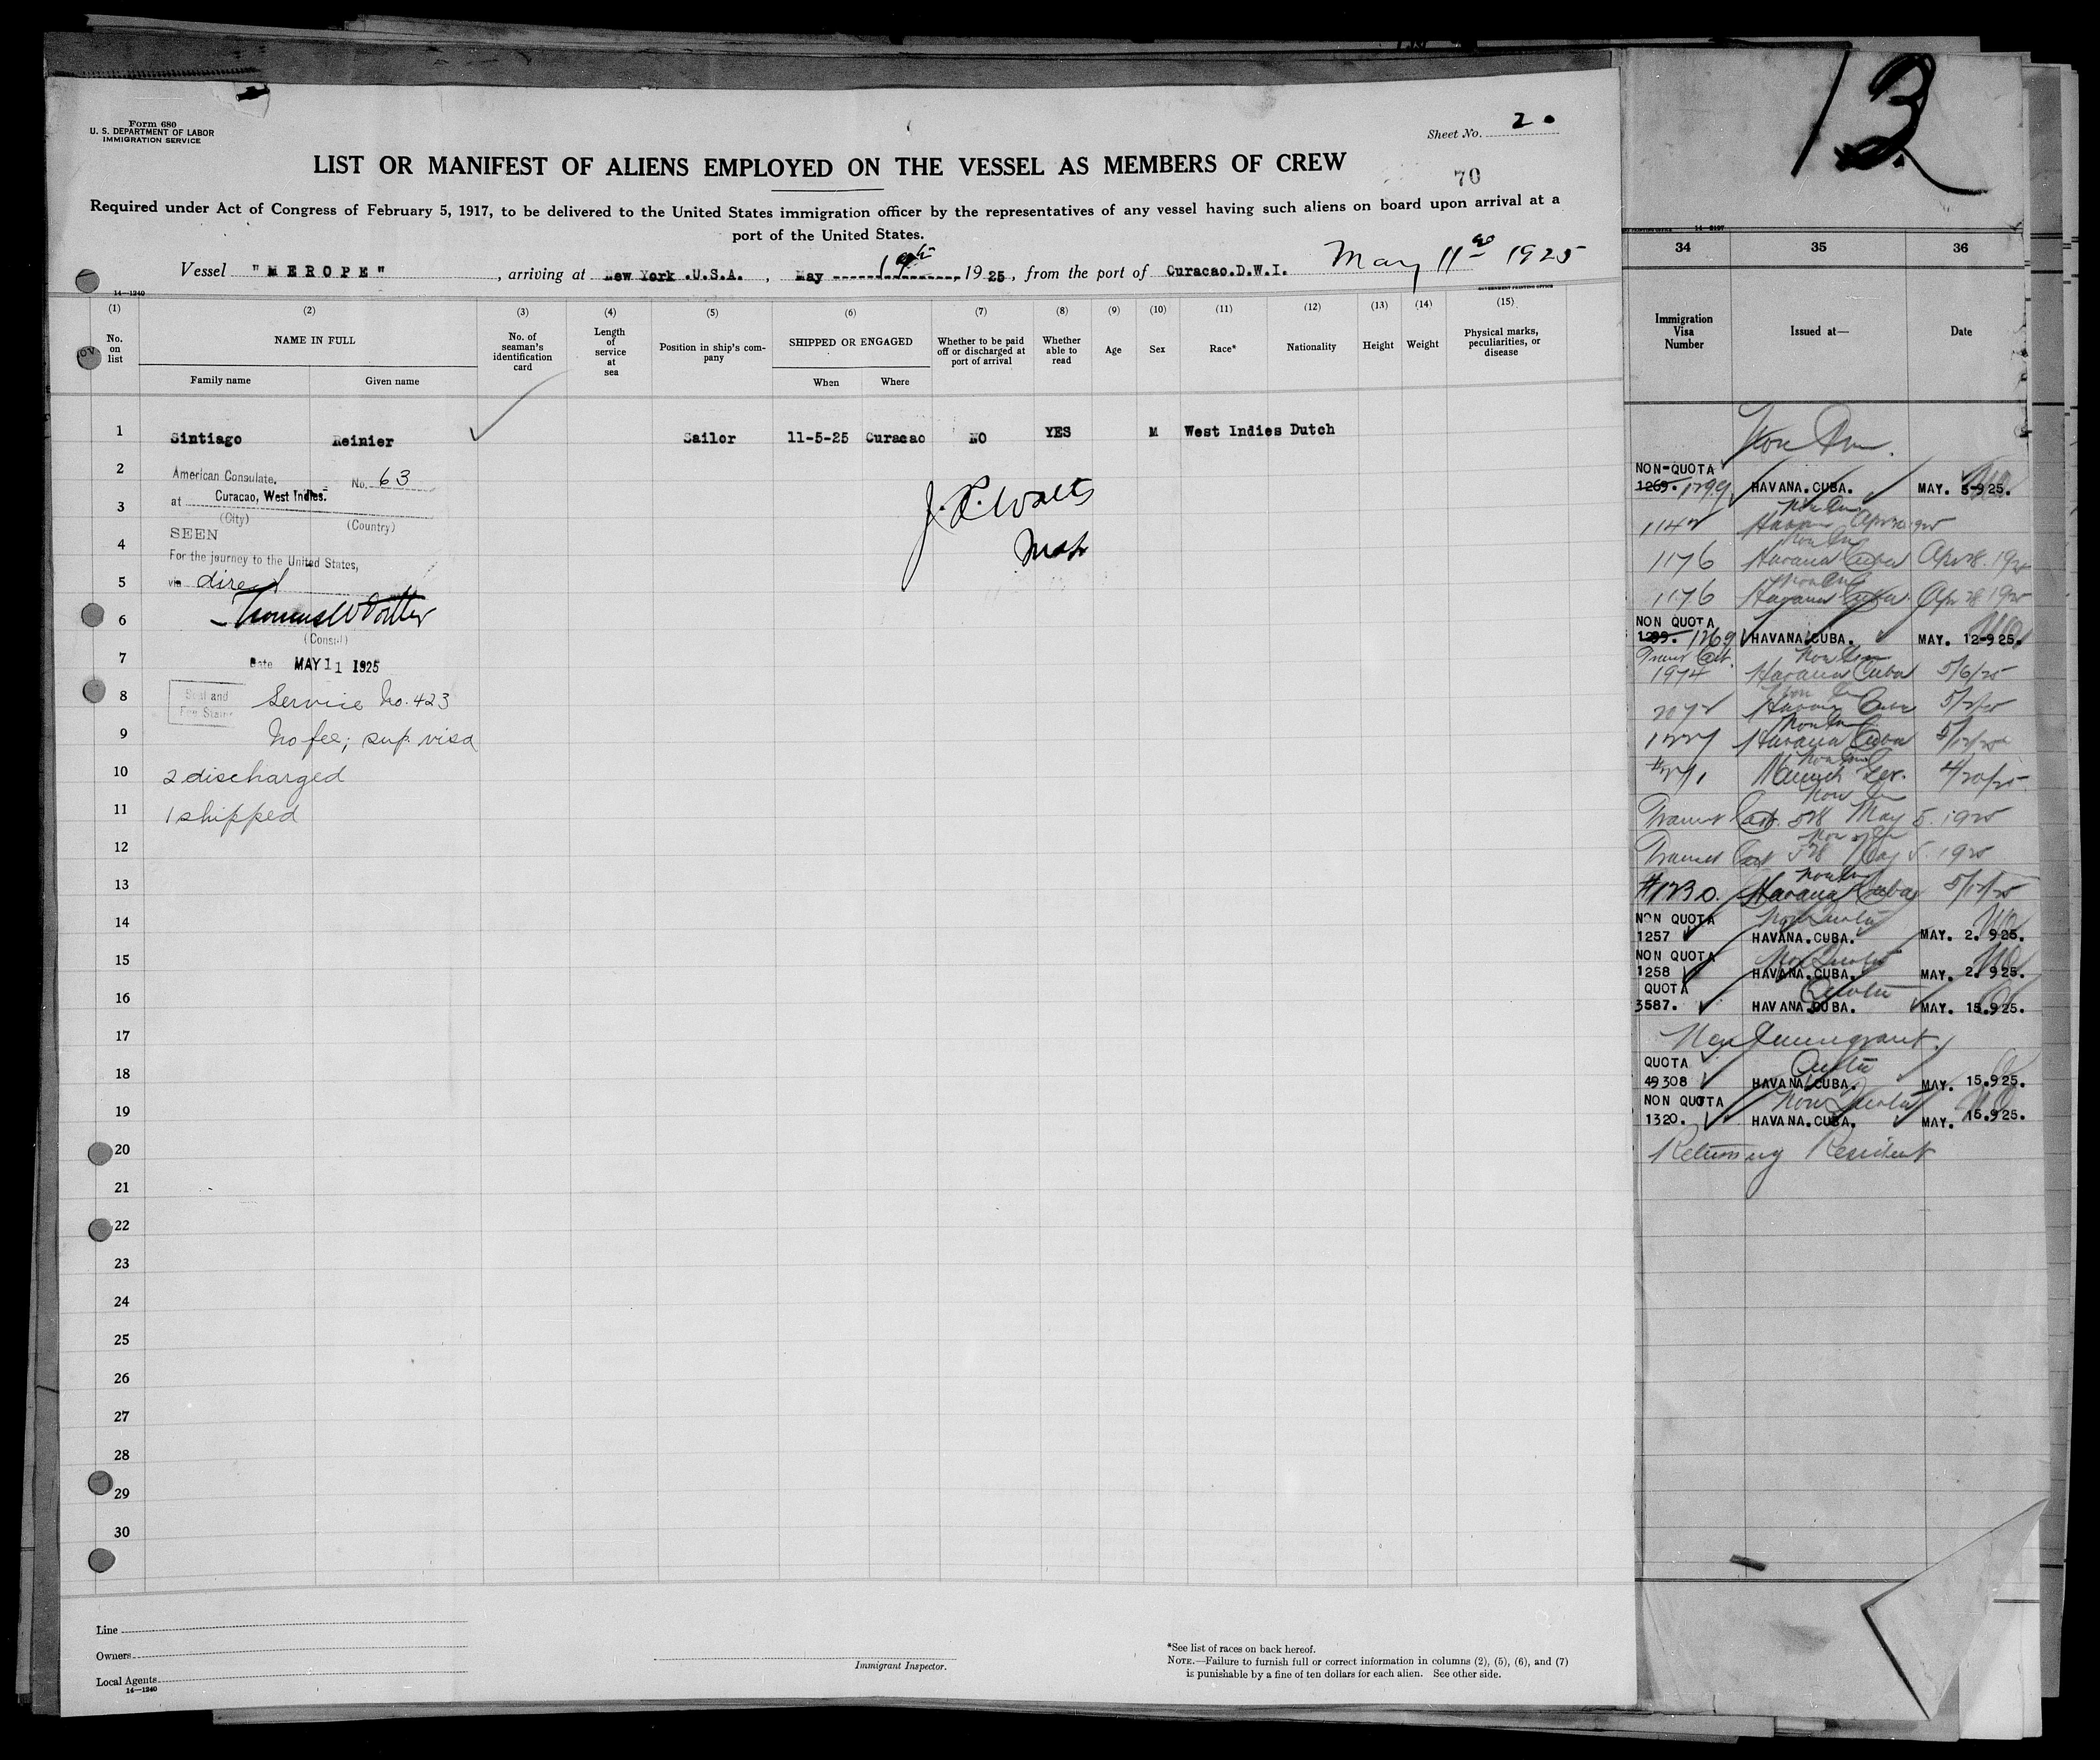 Form 680
U. S. DEPARTMENT OF LABOR
IMMIGRATION SERVICE
Sheet No. 2
LIST OR MANIFEST OF ALIENS EMPLOYED ON THE VESSEL AS MEMBERS OF CREW
70
Required under Act of Congress of February 5, 1917, to be delivered to the United States immigration officer by the representatives of any vessel having such aliens on board upon arrival at a
port of the United States.
Vessel "MEROPE", arriving at New York .U.S.A., May 1925, from the port of Curacao.D.W.I. May 11 1925
14—1240
GOVERNMENT PRINTING OFFICE
(1) (2) (3) (4) (5) (6) (7) (8) (9) (10) (11) (12) (13) (14) (15)
No. on list
NAME IN FULL
Family name
Given name
No. of seaman's identification card
Length of service at sea
Position in ship's company
SHIPPED OR ENGAGED
When
Where
Whether to be paid off or discharged at port of arrival
Whether able to read
Age
Sex
Race*
Nationality
Height
Weight
Physical marks, peculiarities, or disease
1 Sintiago Reinier Sailor 11-5-25 Curacao NO YES M West Indies Dutch
2
3
4
5
6
7
8
9
10
11
12
13
14
15
16
17
18
19
20
21
22
23
24
25
26
27
28
29
30
American Consulate, No. 63
at Curacao, West Indies.
(City) (Country)
SEEN
For the journey to the United States,
via direct
(Consul)
Date MAY 11 1925
Seal and
Fee Stamp
Service No. 423
No fee; sup. visa
2 discharged
1 shipped
J. R. Walts
Line
Owners
Local Agents
14—1240
Immigrant Inspector.
*See list of races on back hereof.
NOTE.—Failure to furnish full or correct information in columns (2), (5), (6), and (7)
is punishable by a fine of ten dollars for each alien. See other side.
13
34 35 36
Immigration Visa Number
Issued at—
Date
NON-QUOTA
1269. HAVANA.CUBA. MAY. 5-925.
1176 Havana Cuba Apr 28. 1925
1176 Havana Cuba Apr 28 1925
NON QUOTA
1299. 1269 HAVANA.CUBA. MAY. 12-925.
1974 Havana Cuba 5/6/25
Havana Cuba
Havana Cuba 5/12/25
4/20/25
May 5. 1925
May 5. 1925
#1230. Havana Cuba 5/12/25
NON QUOTA Non Quota
1257 HAVANA.CUBA. MAY. 2. 925.
NON QUOTA Non Quota
1258 HAVANA.CUBA. MAY. 2. 925.
QUOTA Quota
3587. HAVANA.CUBA. MAY. 15.925.
Non Immigrant.
QUOTA Quota
49308 HAVANA.CUBA. MAY. 15.925.
NON QUOTA Non Quota
1320. HAVANA.CUBA. MAY. 15.925.
Returning Resident